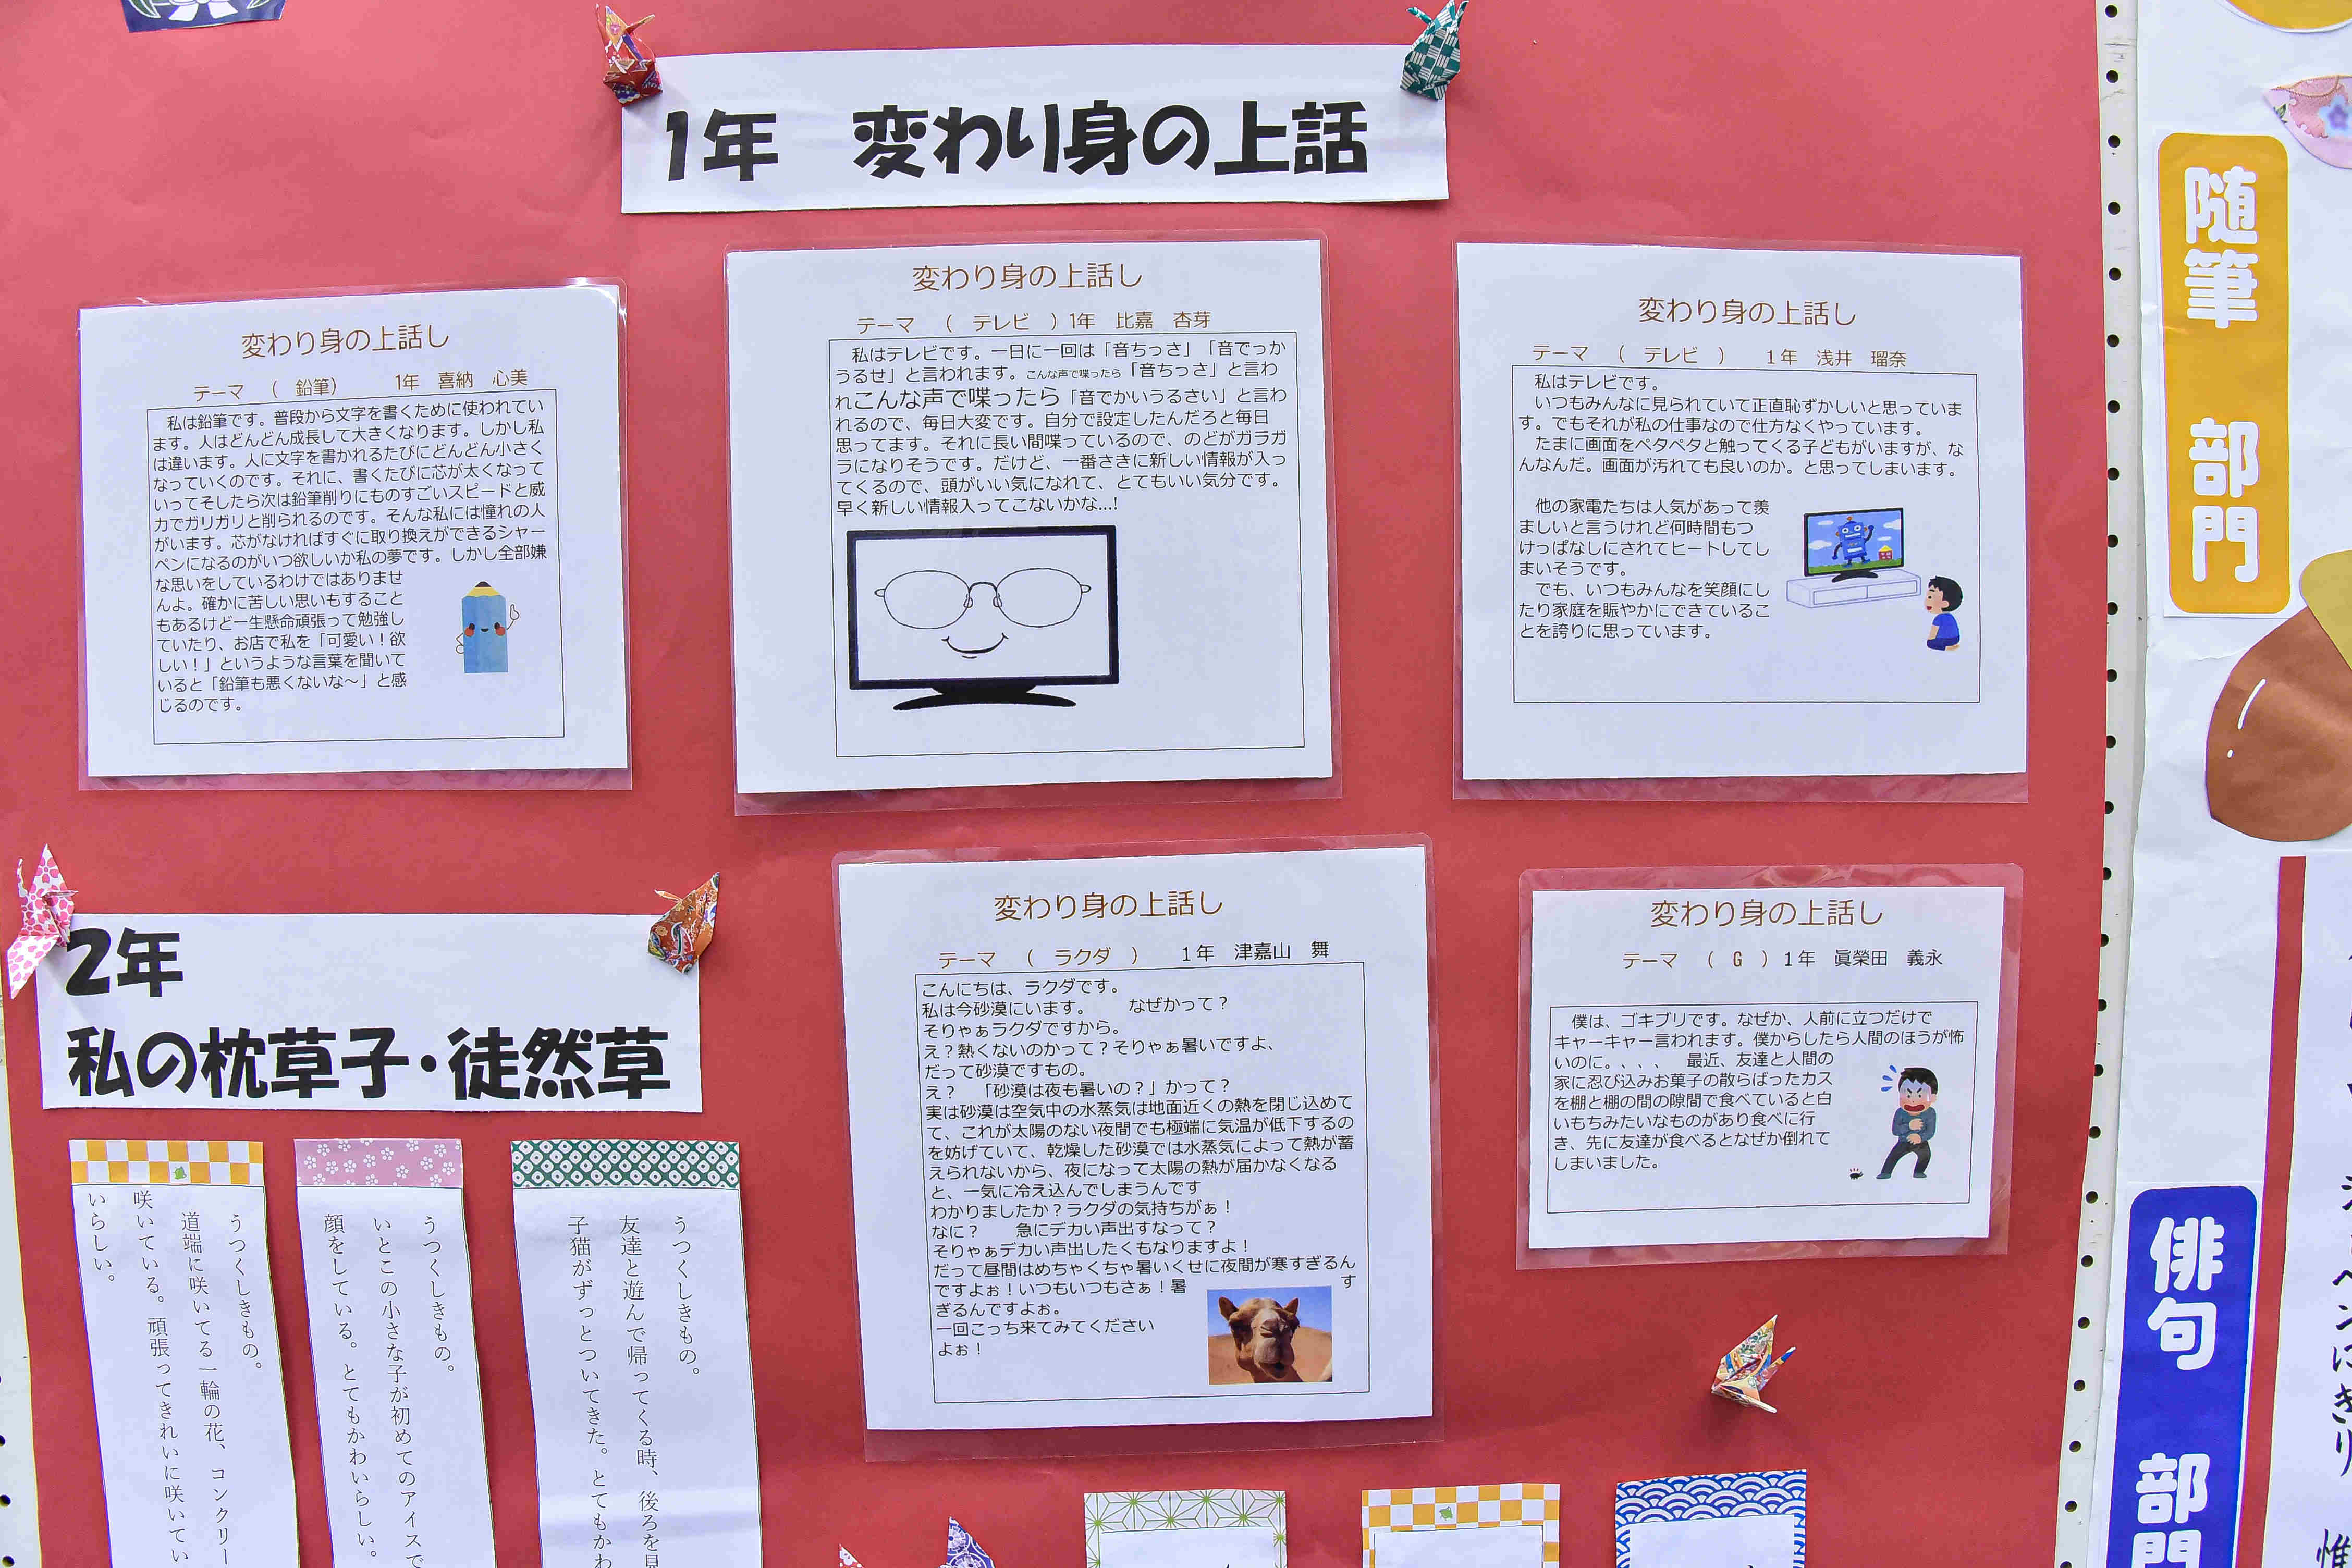 1年　変わり身の上話
変わり身の上話し
テーマ　（　鉛筆）　　　1年　喜納　心美
私は鉛筆です。普段から文字を書くために使われてい
ます。人はどんどん成長して大きくなります。しかし私
は違います。人に文字を書かれるたびにどんどん小さく
なっていくのです。それに、書くたびに芯が太くなって
いってそしたら次は鉛筆削りにものすごいスピードと威
力でガリガリと削られるのです。そんな私には憧れの人
がいます。芯がなければすぐに取り換えができるシャー
ペンになるのがいつ欲しいか私の夢です。しかし全部嫌
な思いをしているわけではありませ
んよ。確かに苦しい思いもすること
もあるけど一生懸命頑張って勉強し
ていたり、お店で私を「可愛い！欲
しい！」というような言葉を聞いて
いると「鉛筆も悪くないな～」と感
じるのです。
変わり身の上話し
テーマ　（　テレビ　）1年　比嘉　杏芽
私はテレビです。一日に一回は「音ちっさ」「音でっか
うるせ」と言われます。こんな声で喋ったら「音ちっさ」と言わ
れこんな声で喋ったら「音でかいうるさい」と言わ
れるので、毎日大変です。自分で設定したんだろと毎日
思ってます。それに長い間喋っているので、のどがガラガ
ラになりそうです。だけど、一番さきに新しい情報が入っ
てくるので、頭がいい気になれて、とてもいい気分です。
早く新しい情報入ってこないかな...!
変わり身の上話し
テーマ　（　テレビ　）　　1年　浅井　瑠奈
私はテレビです。
いつもみんなに見られていて正直恥ずかしいと思っていま
す。でもそれが私の仕事なので仕方なくやっています。
たまに画面をペタペタと触ってくる子どもがいますが、な
んなんだ。画面が汚れても良いのか。と思ってしまいます。
他の家電たちは人気があって羨
ましいと言うけれど何時間もつ
けっぱなしにされてヒートしてし
まいそうです。
でも、いつもみんなを笑顔にし
たり家庭を賑やかにできているこ
とを誇りに思っています。
変わり身の上話し
テーマ　（　ラクダ　）　　1年　津嘉山　舞
こんにちは、ラクダです。
私は今砂漠にいます。　　なぜかって？
そりゃぁラクダですから。
え？熱くないのかって？そりゃぁ暑いですよ、
だって砂漠ですもの。
え？　「砂漠は夜も暑いの？」かって？
実は砂漠は空気中の水蒸気は地面近くの熱を閉じ込めて
て、これが太陽のない夜間でも極端に気温が低下するの
を妨げていて、乾燥した砂漠では水蒸気によって熱が蓄
えられないから、夜になって太陽の熱が届かなくなる
と、一気に冷え込んでしまうんです
わかりましたか？ラクダの気持ちがぁ！
なに？　　急にデカい声出すなって？
そりゃぁデカい声出したくもなりますよ！
だって昼間はめちゃくちゃ暑いくせに夜間が寒すぎるん
ですよぉ！いつもいつもさぁ！暑　　　　　　　　す
ぎるんですよぉ。
一回こっち来てみてください
よぉ！
変わり身の上話し
テーマ　（　G　）1年　眞榮田　義永
僕は、ゴキブリです。なぜか、人前に立つだけで
キャーキャー言われます。僕からしたら人間のほうが怖
いのに。、、、　　最近、友達と人間の
家に忍び込みお菓子の散らばったカス
を棚と棚の間の隙間で食べていると白
いもちみたいなものがあり食べに行
き、先に友達が食べるとなぜか倒れて
しまいました。
2年
私の枕草子・徒然草
うつくしきもの。
友達と遊んで帰ってくる時、後ろを見
子猫がずっとついてきた。とてもかわ
うつくしきもの。
いとこの小さな子が初めてのアイスで
顔をしている。とてもかわいらしい。
うつくしきもの。
道端に咲いてる一輪の花、コンクリー
咲いている。頑張ってきれいに咲いてい
いらしい。
随筆　部門
俳句　部門